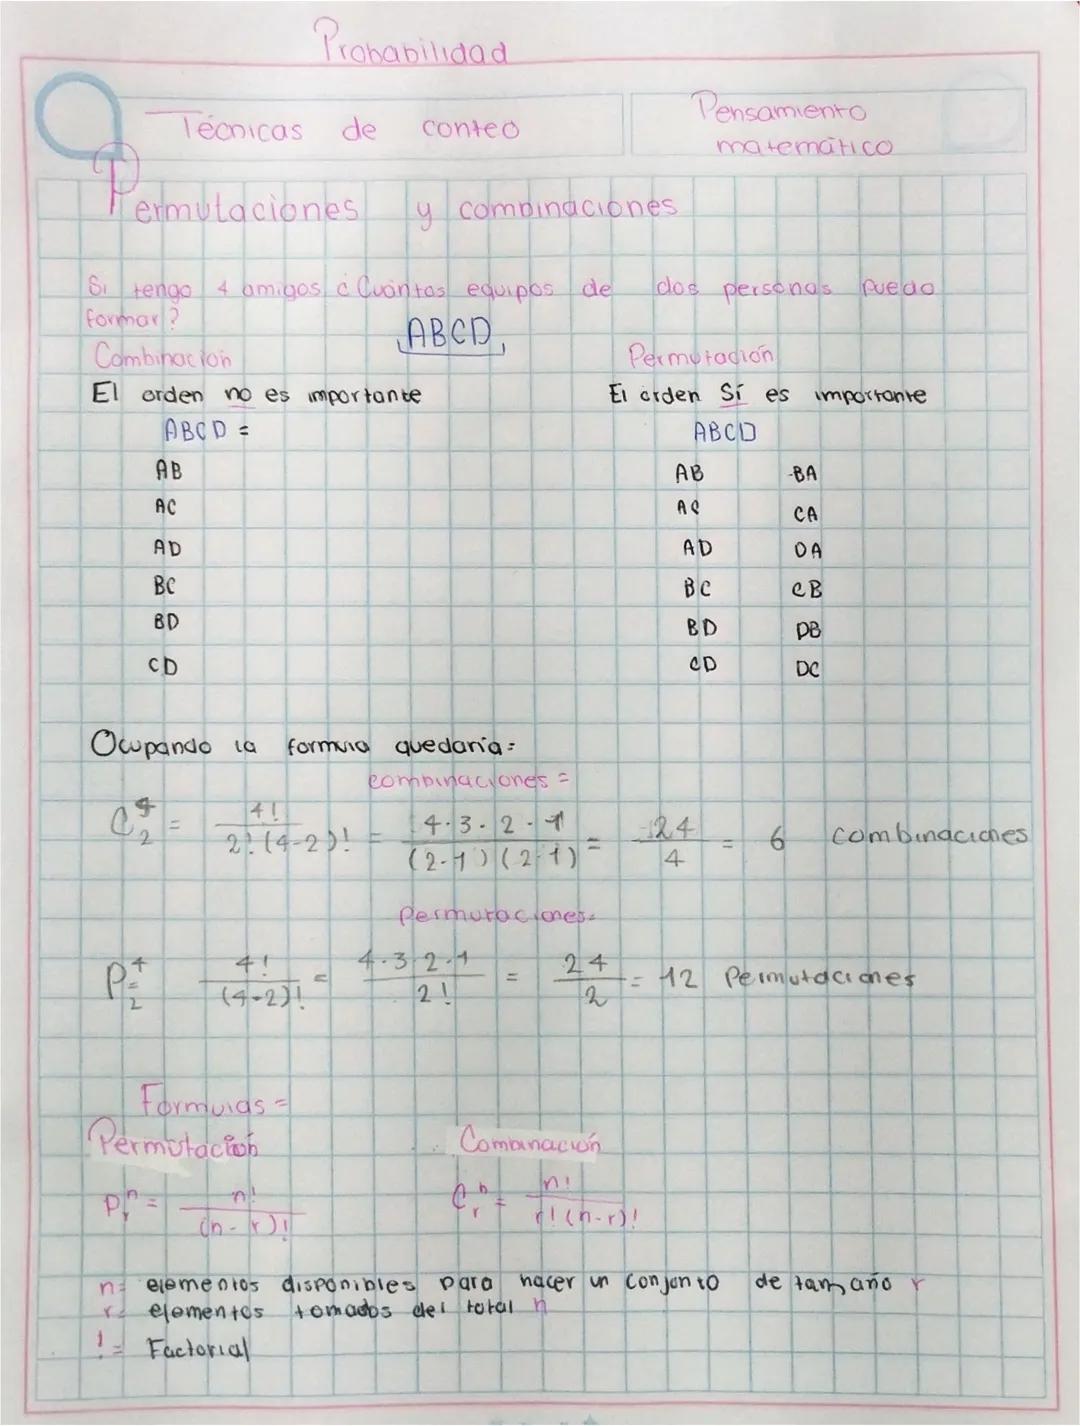 Probabilidad
Técnicas de conteo
Pensamiento
matemático
Permutaciones y combinaciones
Si tengo 4 amigos ¿Cuántos equipos de dos personas puedo
formar?
ABCD
Combinación
Permutación
El orden no es importante
El orden Sí es importante
ABCD =
ABCD
AB
AB BA
AC
AC CA
AD
AD DA
BC
BC CB
BD
BD DB
CD
CD DC
Ocupando la formula quedaría:
combinaciones =
C₂⁴ = 4! / 2!(4-2)! = 4·3·2·1 / (2·1)(2·1) = 24 / 4 = 6 combinaciones
Permutaciones=
P₂⁴ = 4! / (4-2)! = 4·3·2·1 / 2! = 24 / 2 = 12 Permutaciones
Formulas =
Permutación
Combinación
Pᵣⁿ = n! / (n-r)!
Cᵣⁿ = n! / r!(n-r)!
n= elementos disponibles para hacer un conjonto de tamaño r
r= elementos tomados del total n
! = Factorial